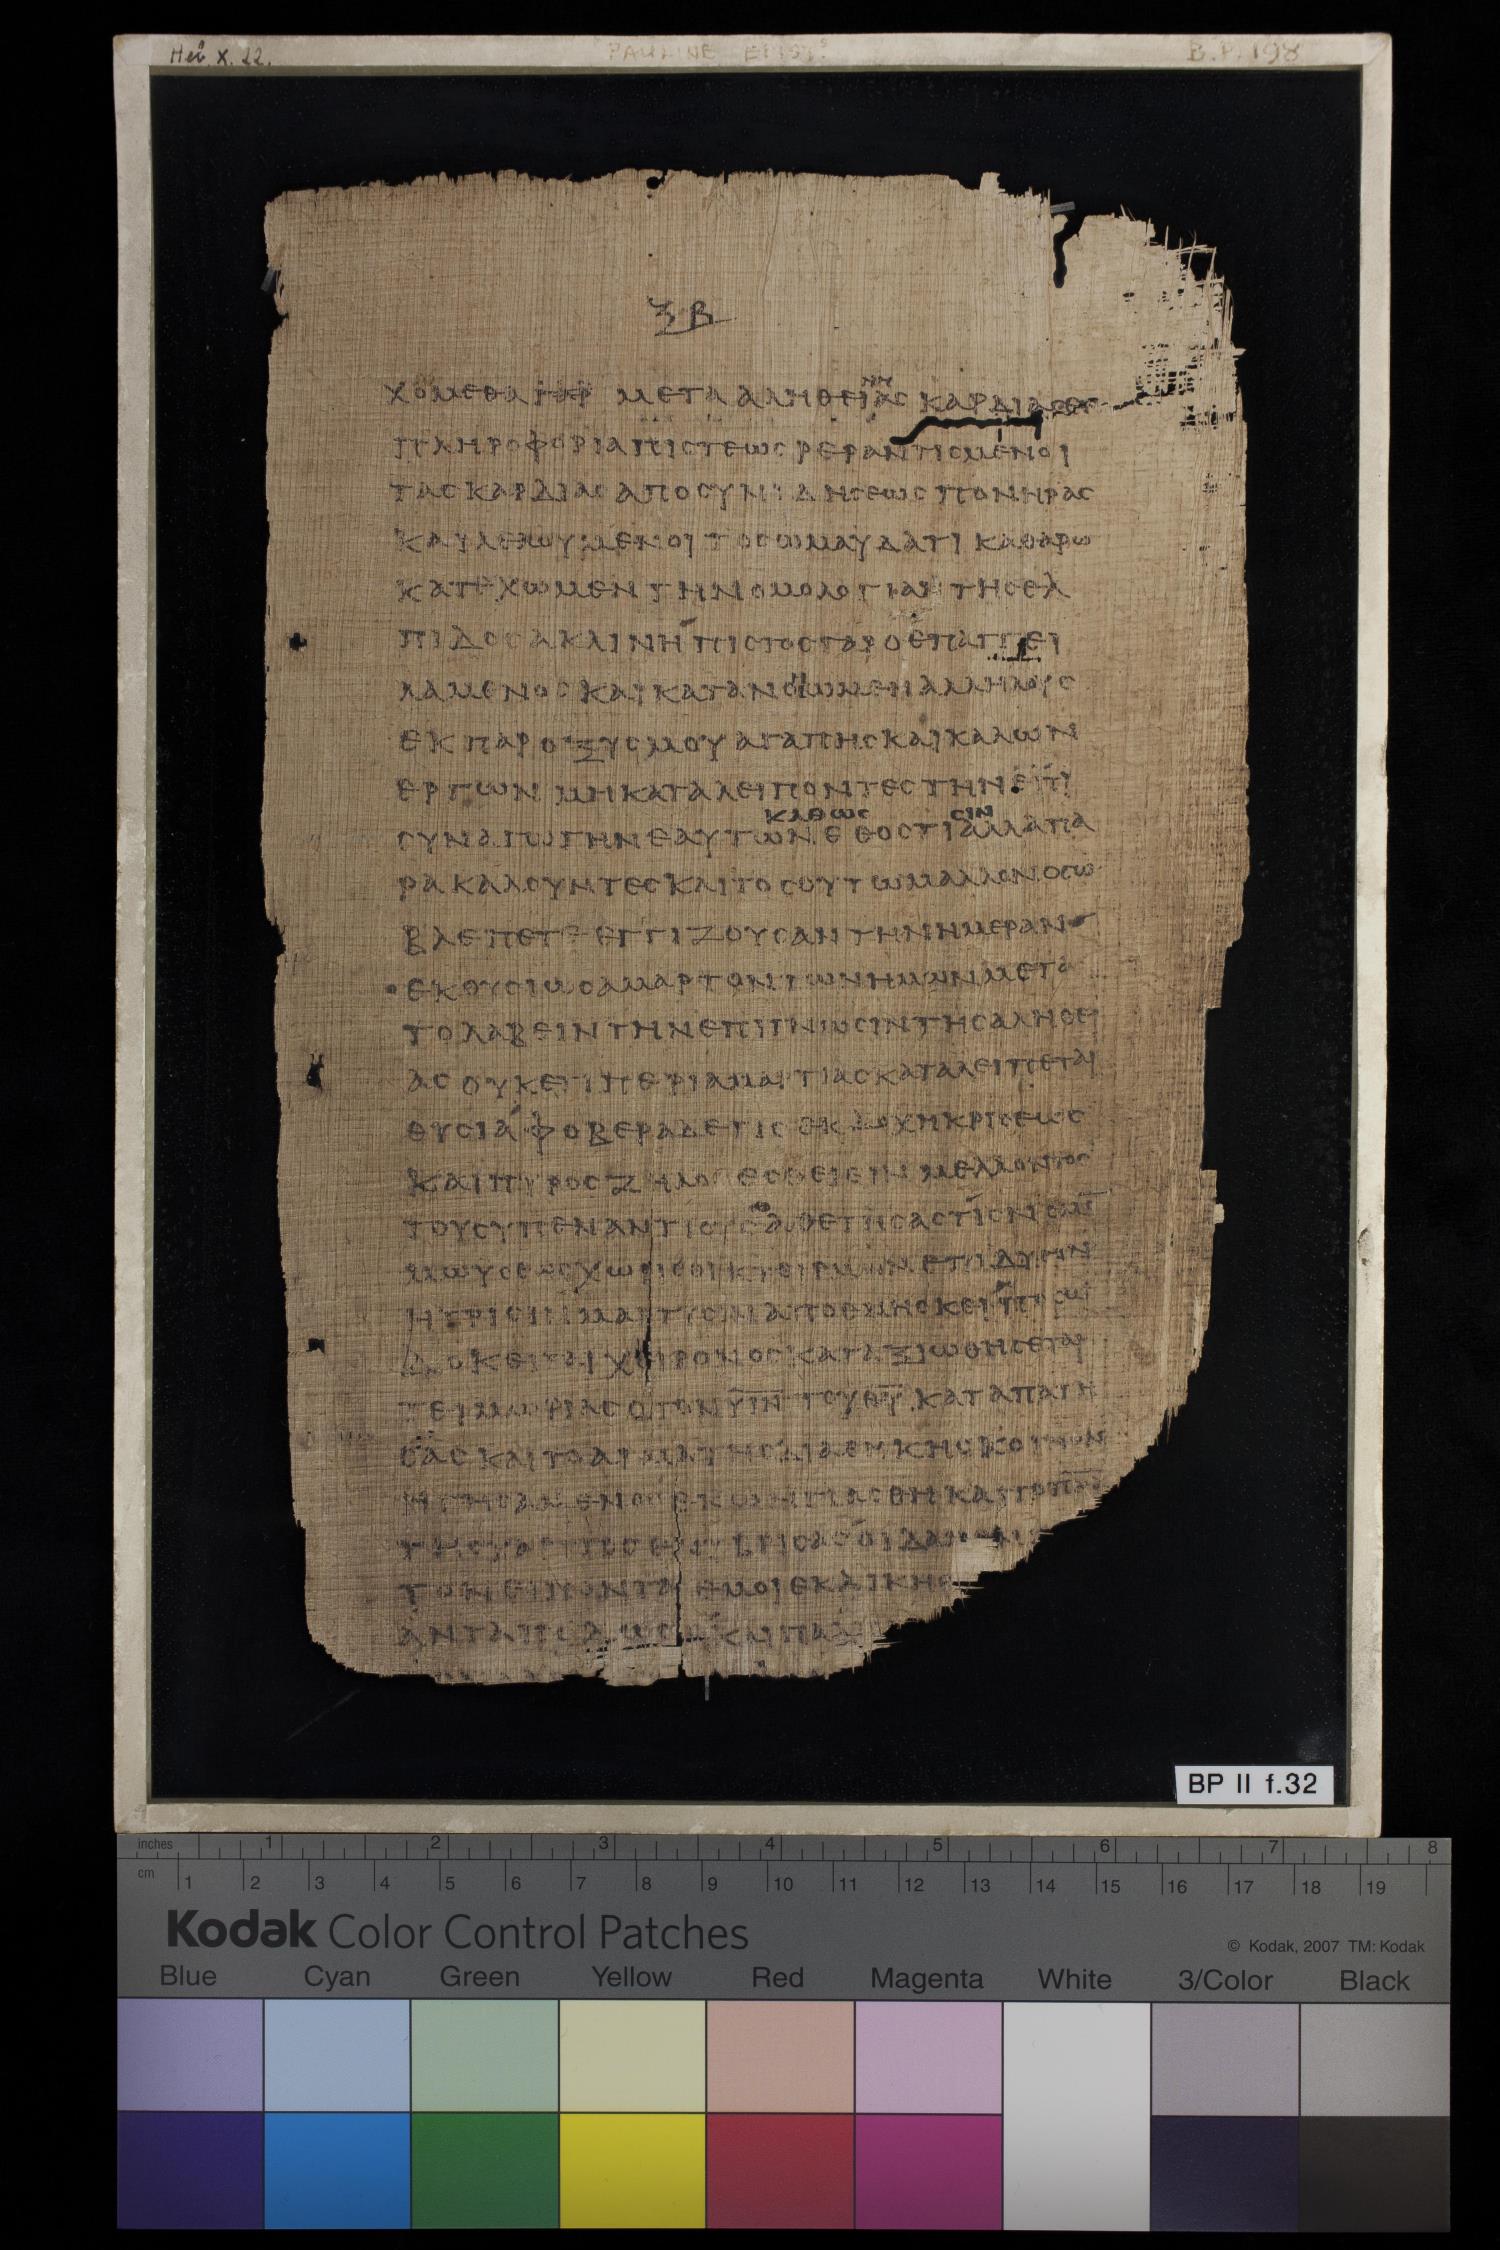 Heb. X. 22.
PAULINE EPIST.
B.P. 198
ξβ
χομεθα γαρ μετα αληθειας καρδιας εν
νη
πληροφορια πιστεως ρεραντισμενοι
τας καρδιας απο συνιδησεως πονηρας
και λελουμενοι το σωμα υδατι καθαρω
κατεχωμεν την ομολογιαν της ελ
πιδος ακλινη πιστος γαρ ο επαγγει
λαμενος και κατανοωμεν αλληλους
εκ παροξυσμου αγαπης και καλων
εργων μη καταλειποντες την επι
καθως σιν
συναγωγην εαυτων εθος τι αλλα πα
ρακαλουντες και τοσουτω μαλλον οσω
βλεπετε εγγιζουσαν την ημεραν
εκουσιως αμαρτοντων ημων μετα
το λαβειν την επιγνωσιν της αληθει
ας ουκετι περι αμαρτιας καταλειπεται
θυσια φοβερα δε τις εκδοχη κρισεως
και πυρος ζηλος εσθειειν μελλοντος
τους υπεναντιους αθετησας τις νομον
μωυσεως χωρις οικτειρμων επι δυσιν
η τρισιν μαρτυσιν αποθνησκει ποσω
δοκειται χειρονος καταξιωθησεται
τειμωριας ο τον υιν του θυ καταπατη
σας και το αιμα της διαθηκης κοινον
ηγησαμενος εν ω ηγιασθη και το πνα
της χαριτος ενυβρισας οιδαμεν
τον ειποντα εμοι εκδικησ
ανταποδωσω και πα
BP II f.32
inches 1 2 3 4 5 6 7 8
cm 1 2 3 4 5 6 7 8 9 10 11 12 13 14 15 16 17 18 19
Kodak Color Control Patches
© Kodak, 2007 TM: Kodak
Blue Cyan Green Yellow Red Magenta White 3/Color Black